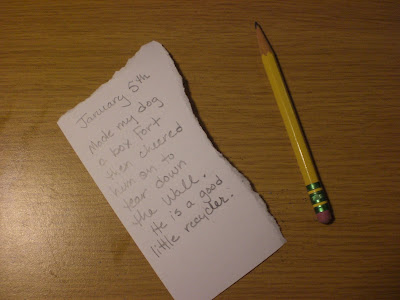 January 5th
Made my dog
a box fort
then cheered
him on to
tear down
the wall.
He is a good
little recycler.